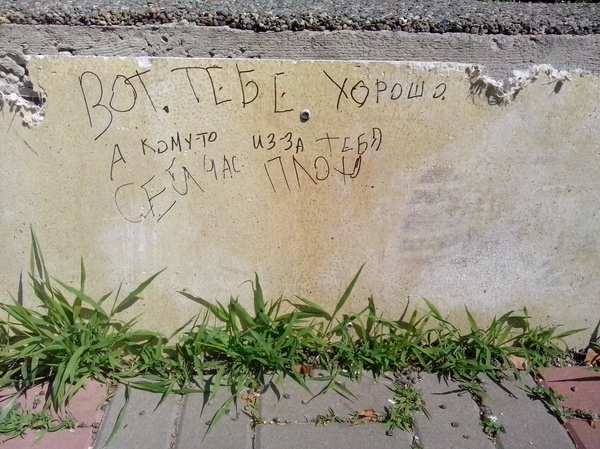 ВОТ. ТЕБЕ ХОРОШО
А КОМУТО ИЗ-ЗА ТЕБЯ
СЕЙЧАС ПЛОХО